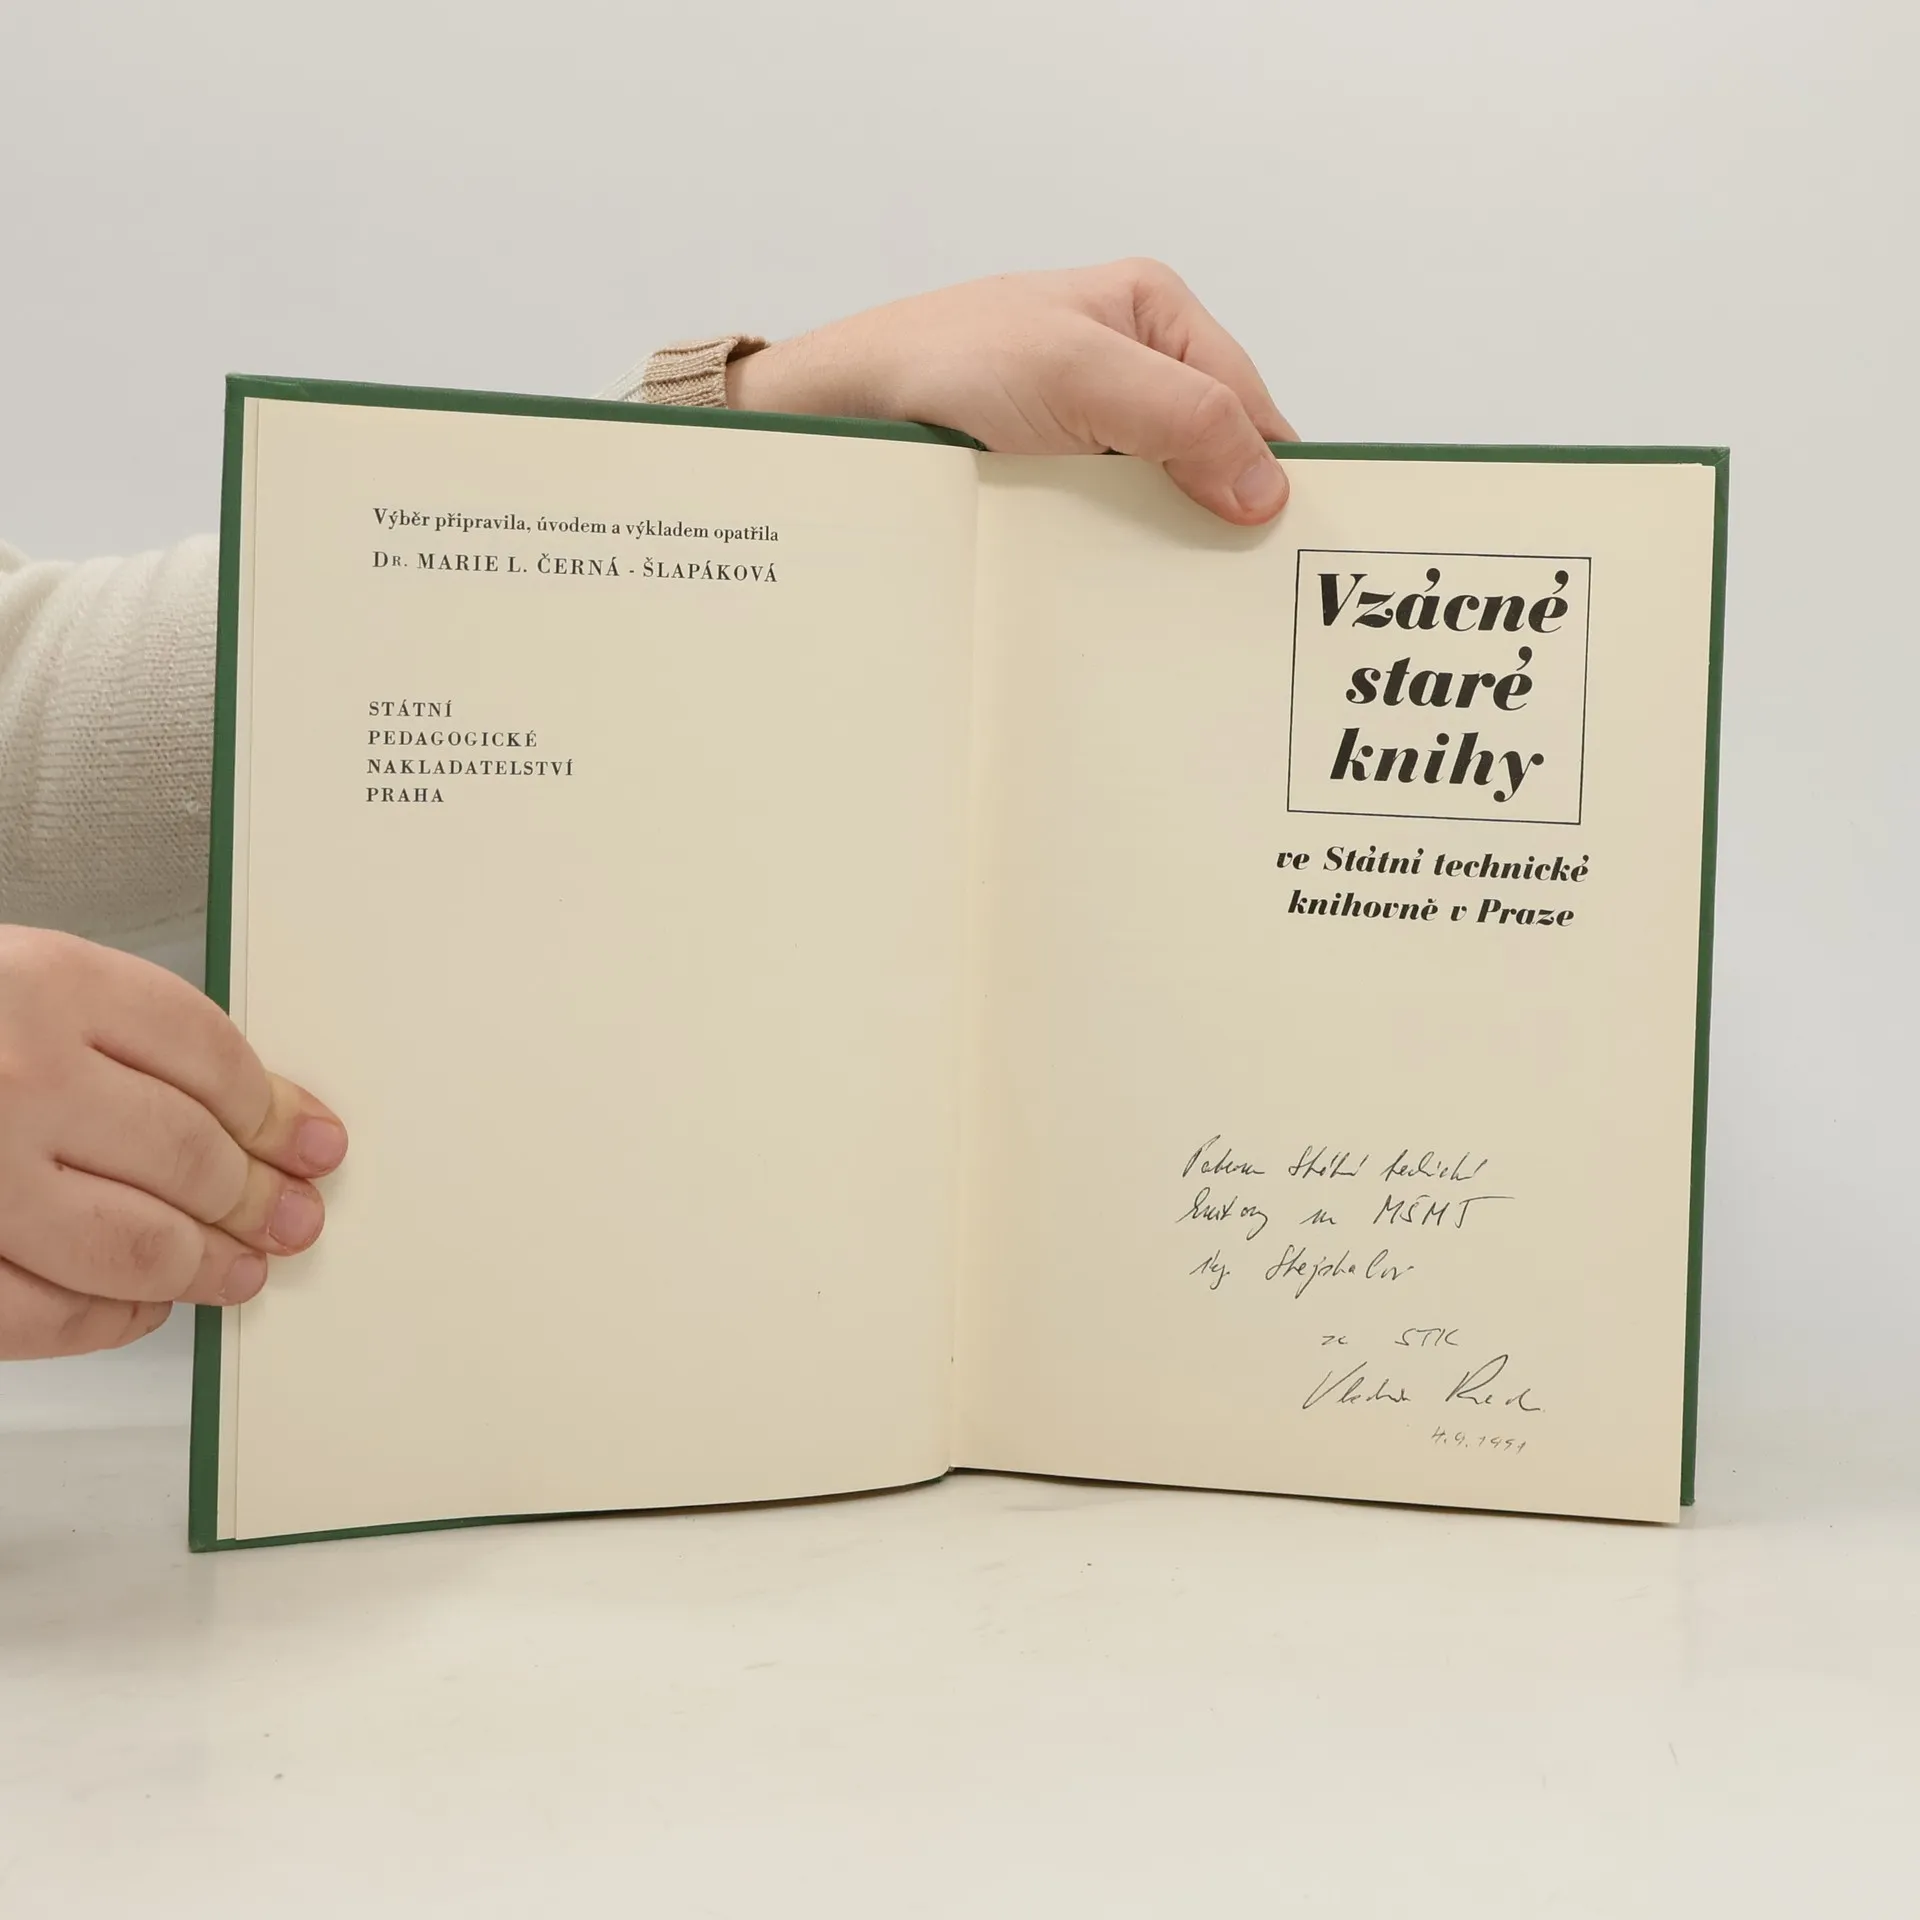 Výběr připravila, úvodem a výkladem opatřila
Dr. MARIE L. ČERNÁ - ŠLAPÁKOVÁ
STÁTNÍ
PEDAGOGICKÉ
NAKLADATELSTVÍ
PRAHA
Vzácné
staré
knihy
ve Státní technické
knihovně v Praze
Státní technické
knihovny MŠMT
za STK
4.9.1991